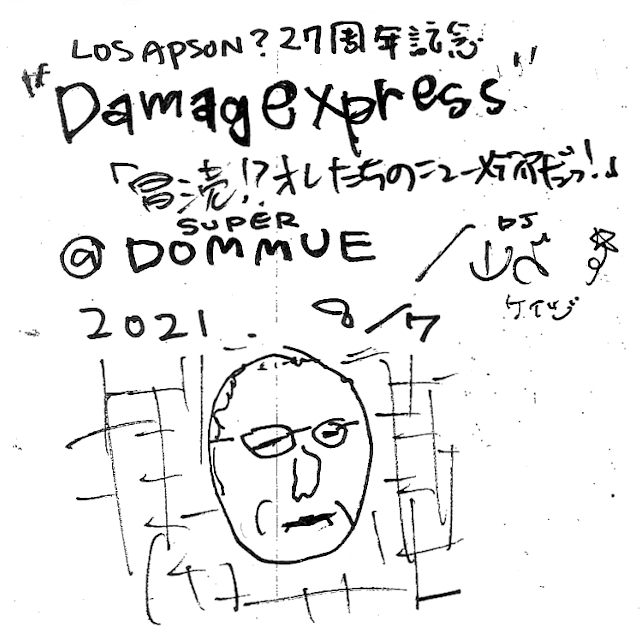 LOS APSON？27周年記念
"Damagexpress"
「冒涜!?オレたちのニューメディアだっ!」
SUPER
@ DOMMUE
DJ
ケイツブ
2021. 8/7